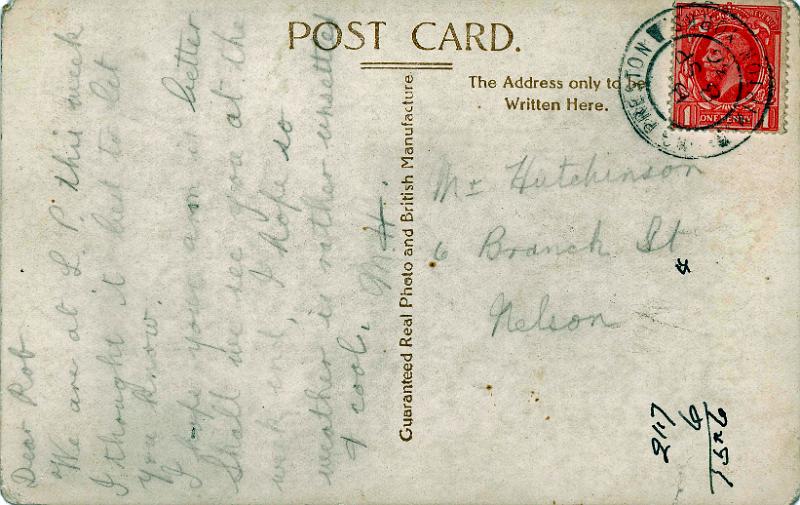 POST CARD.
The Address only to be
Written Here.
Guaranteed Real Photo and British Manufacture
Dear Rob
We are at L. P. this week
I thought it best to let
you know.
I hope your arm is better
Shall we see you at the
week end, I hope so
weather is rather unsettled
& cool. M. H.
Mr Hutchinson
6 Branch St
Nelson
PRESTON
1 ONE PENNY 1
6